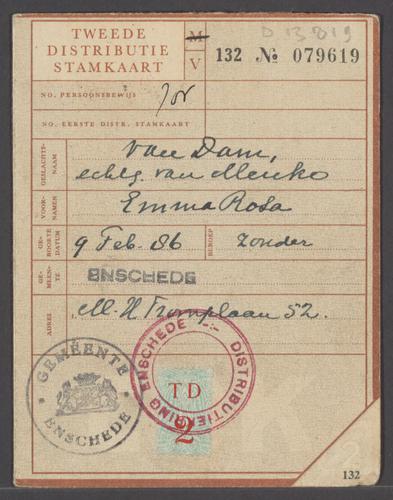 D 13819
TWEEDE
DISTRIBUTIE
STAMKAART
M
V
132 No 079619
NO. PERSOONSBEWIJS
NO. EERSTE DISTR. STAMKAART
GESLACHTS-
NAAM
van Dam,
echtg. van Menko
VOOR-
NAMEN
Emma Rosa
GE-
BOORTE
DATUM
9 Feb. 86
BEROEP
zonder
GE-
MEEN-
TE
ENSCHEDE
ADRES
1.
M. H. Tromplaan 52.
GEMEENTE ENSCHEDE
DISTRIBUTIEKRING ENSCHEDE
TD
2
132